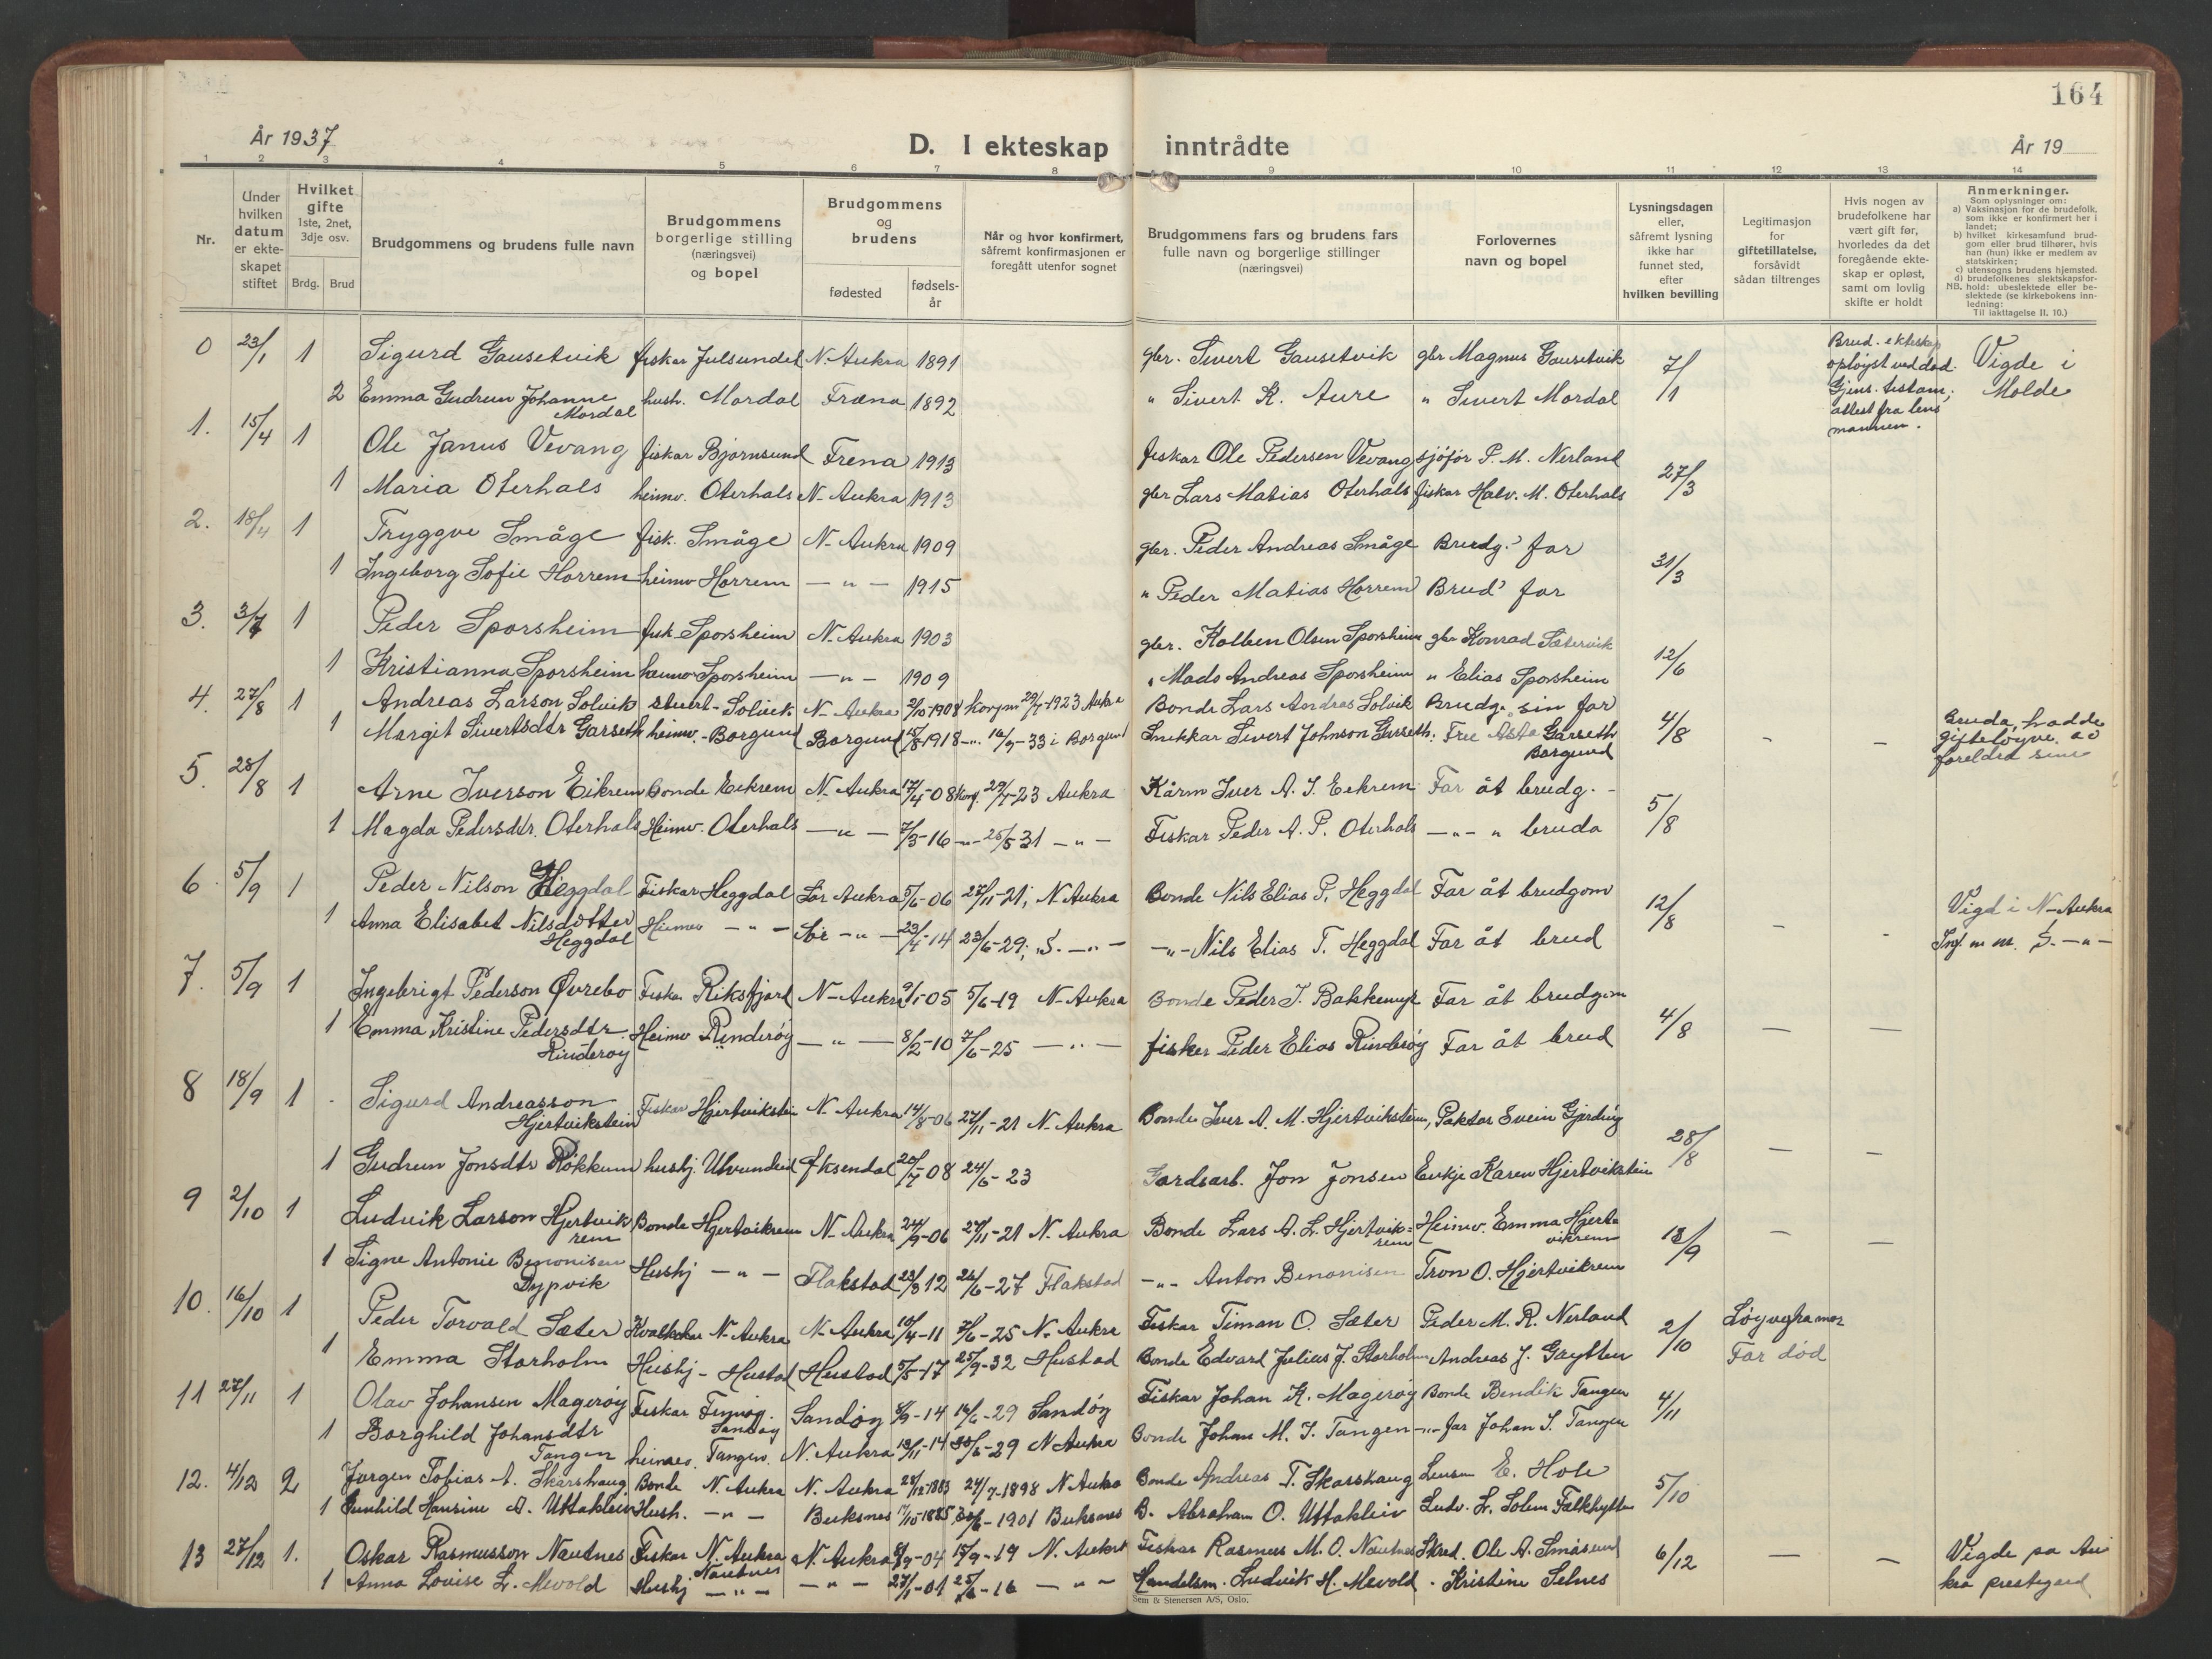 164
År 1937
D. I ekteskap inntrådte
År 19
1 2 3 4 5 6 7 8 9 10 11 12 13 14
Nr.
Under hvilken datum er ekte-skapet stiftet
Hvilket gifte 1ste, 2net, 3dje osv.
Brdg. Brud
Brudgommens og brudens fulle navn
Brudgommens borgerlige stilling (næringsvei) og bopel
Brudgommens og brudens
fødested
fødsels-år
Når og hvor konfirmert, såfremt konfirmasjonen er foregått utenfor sognet
Brudgommens fars og brudens fars fulle navn og borgerlige stillinger (næringsvei)
Forlovernes navn og bopel
Lysningsdagen eller, såfremt lysning ikke har funnet sted, efter hvilken bevilling
Legitimasjon for giftetillatelse, forsåvidt sådan tiltrenges
Hvis nogen av brudefolkene har vært gift før, hvorledes da det foregående ekte-skap er opløst, samt om lovlig skifte er holdt
Anmerkninger.
Som oplysninger om:
a) Vaksinasjon for de brudefolk, som ikke er konfirmert her i landet;
b) hvilket kirkesamfund brud-gom eller brud tilhører, hvis han (hun) ikke er medlem av statskirken;
c) utensogns brudens hjemsted.
d) brudefolkenes slektskapsfor-hold: ubeslektede eller be-slektede (se kirkebokens inn-ledning:
NB.
Til iakttagelse II. 10.)
0 23/1 1 Sigurd Gausetvik fiskar Julsundet N. Aukra 1891 gbr. Sivert Gausetvik gbr Magnus Gausetvik 7/1 Brud. ekteskap opløyst ved død. Gjens. testam; attest fra lens mannen. Vigde i Molde
2 Emma Gudrun Johanne Mordal hush. Mordal Fræna 1892 " Sivert K. Aure " Sivert Mordal
1. 15/4 1 Ole Janus Vevang fiskar Bjørnsund Frena 1913 fiskar Ole Pedersen Vevang sjøfør P. M. Nerland 27/3
1 Maria Oterhals heimv. Oterhals N- Aukra 1913 gbr Lars Matias Oterhals fiskar Halv. M. Oterhals
2. 18/4 1 Tryggve Småge fisk. Småge N- Aukra 1909 gbr. Peder Andreas Småge Brudg.' far 31/3
1 Ingeborg Sofie Horrem heimv Horrem — " — 1915 " Peder Matias Horrem Brud' far
3. 3/7 1 Peder Sporsheim fisk Sporsheim N. Aukra 1903 gbr. Kolben Olsen Sporsheim gbr Konrad Sætervik 12/6
1 Kristianna Sporsheim heimv Sporsheim — " — 1909 " Mads Andreas Sporsheim " Elias Sporsheim
4. 27/8 1 Andreas Larson Solvik stuert - Solvik N- Aukra 2/10-1908 29/7-1923 Aukra Bonde Lars Andreas Solvik Brudg. sin far 4/8 - - Bruda hadde gifteløyve av foreldra sine
1 Margit Sivertsdtr Garseth heimv. - Borgund Borgund 15/8 1918 — " 16/7-33 i Borgund Snikkar Sivert Johnson Garseth. Fru Åsta Garseth Borgund
5. 28/8 1 Arne Iverson Eikrem Bonde Eikrem N- Aukra 17/4-08 konf. 29/7-23 Aukra Kårm Iver A. I. Eikrem Far åt brudg. - 5/8
1 Magda Pedersdtr. Oterhals Heimv. Oterhals — " — 7/3-16 — " 25/5 31 — " — Fiskar Peder A. P. Oterhals — " — " bruda
6 5/9 1 Peder Nilson Heggdal Fiskar Heggdal Sør Aukra 5/6-06 27/11-21; N Aukra Bonde Nils Elias P. Heggdal Far åt brudgom 12/8 - - Vigd i N-Aukra
1 Anna Elisabet Nilsdotter Heggdal Heimv — " — Sør — " — 23/4-14 23/6-29; S. — " — — " — Nils Elias T. Heggdal Far åt brud S. — " —
7. 5/9 1 Ingebrigt Pederson Øvrebo Fiskar Riksfjord N-Aukra 9/1-05 5/6-19 N-Aukra Bonde Peder J. Bakkemyr Far åt brudgom 4/8 — —
1 Emma Kristine Pedersdtr. Rinderøy Heimv Rinderøy — " — 8/2-10 7/6-25 — " — fisker Peder Elias Rinderøy Far åt brud
8 18/9 1 Sigurd Andreasson Hjertvikstein Fiskar Hjertvikstein N- Aukra 14/8-06 27/11-21 N- Aukra Bonde Iver A. M. Hjertvikstein, Paktar Svein Gjerding 28/8 — —
1 Gudrun Jonsdtr Røkkum hushj. Ulvundeid Øksendal 20/7-08 24/6-23 Gardsarb. Jon Jonsen Enkje Karen Hjertvikstein
9 2/10 1 Ludvik Larson Hjertvik rem Bonde Hjertvikrem N- Aukra 24/9-06 27/11-21 N. Aukra Bonde Lars A. L. Hjertvik= rem Heimv. Emma Hjert= vikrem 13/9 — —
1 Signe Antonie Benonisen Dypvik Hushj — " — Flakstad 23/8 12 26/6-27 Flakstad — " — Anton Benonisen Tron O. Hjertvikrem
10. 16/10 1 Peder Torvald Sæter N. Aukra N- Aukra 10/4-11 7/6-25 N. Aukra Fiskar Timan O. Sæter Peder M. R. Nerland 2/10 Løyve fra mor Far død
1 Emma Storholm Hushj - Hustad Hustad 5/5-17 25/9-32 Hustad Bonde Edvard Julius J. Storholm Andreas J. Gaytten
11 27/11 1 Olav Johansen Magerøy Fiskar Finnøy. Sandøy Sandøy 8/9-14 16/6-29 Sandøy Fiskar Johan K. Magerøy Bonde Bendik Tangen 4/11
1 Borghild Johansdtr Tangen heimv. Tangen N. Aukra 13/11-14 30/6-29 N Aukra Bonde Johan M. I. Tangen — " — far Johan I. Tangen
12. 4/12 2 Jørgen Tobias A. Skarshaug Bonde N. Aukra N. Aukra 28/12-1883 24/7-1898 N Aukra Bonde Andreas T. Skarshaug Lensm E. Hole 5/10
1 Gunhild Hansine A. Uttakleiv Hush. — " — Buksnes 17/10-1885 30/6-1901 Buksnes B. Abraham O. Uttakleiv Ludv. L. Solem Falkhytten
13 27/12 1. Oskar Rasmusson Nautnes Fiskar N. Aukra Nautnes N. Aukra 8/9-04 15/9-19 N. Aukra Fiskar Rasmus M. O. Nautnes Skred. Ole A. Småsund 6/12 — — Vigde på Au kra prestegard
1 Anna Lovise L. Mevold Hushj — " — — " — 27/1-01 25/6-16 — " — Handelsm. Ludvik H. Mevold . Kristine Selnes
Sem & Stenersen A/S, Oslo.